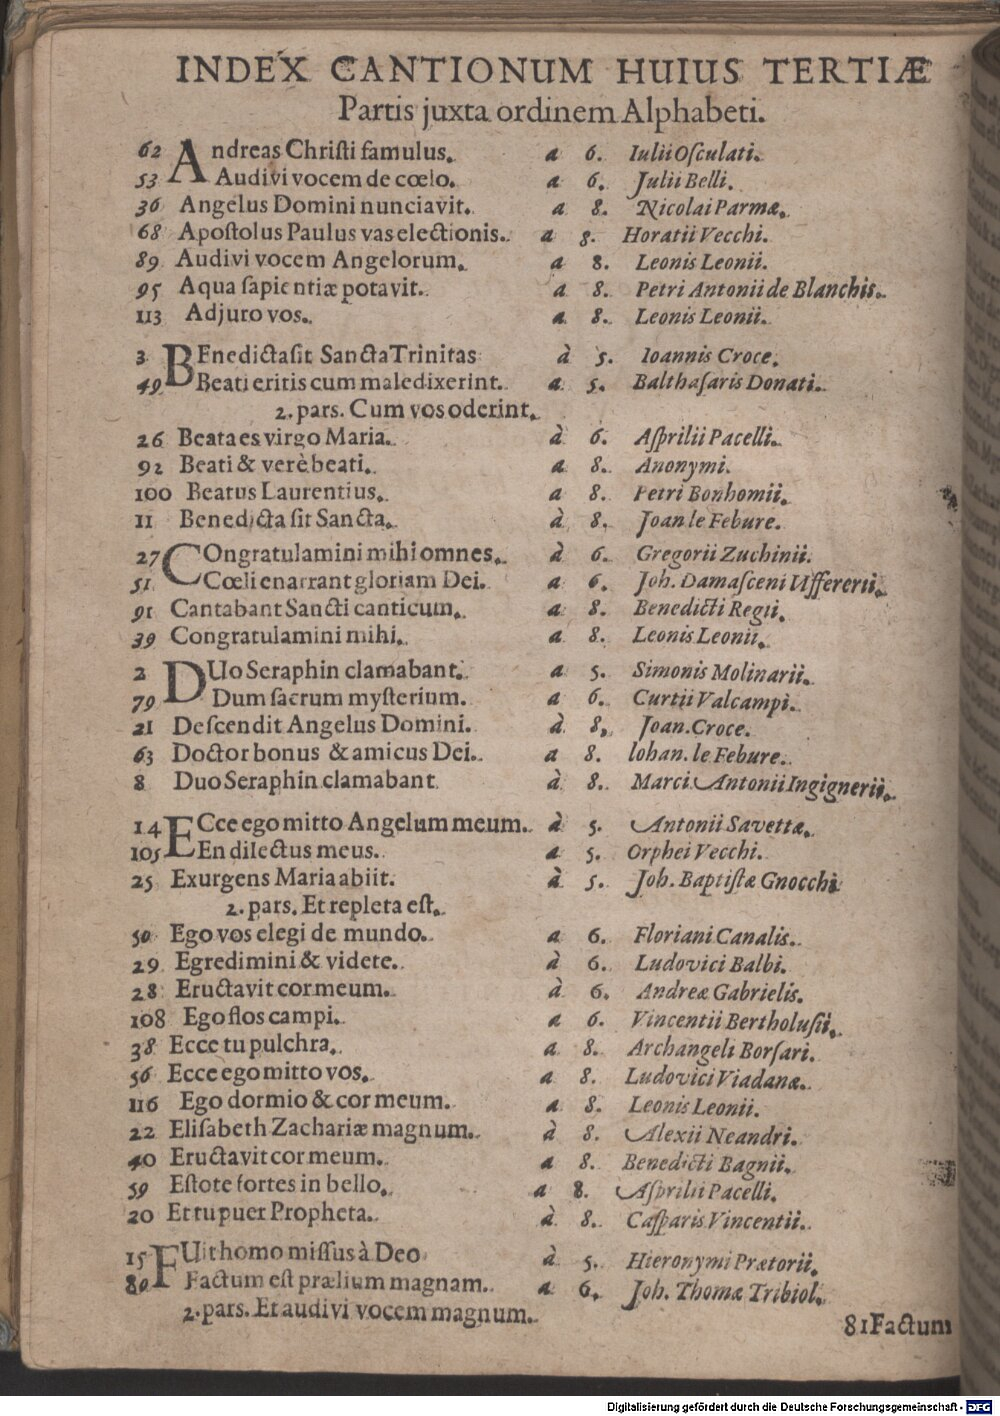 INDEX CANTIONUM HUIUS TERTIÆ
Partis juxta ordinem Alphabeti.
62 Andreas Chriſti famulus. a 6. Iulii Oſculati.
53 Audivi vocem de cœlo. a 6. Julii Belli.
36 Angelus Domini nunciavit. a 8. Nicolai Parmæ.
68 Apoſtolus Paulus vas electionis. a 8. Horatii Vecchi.
89 Audivi vocem Angelorum. a 8. Leonis Leonii.
95 Aqua ſapientiæ potavit. a 8. Petri Antonii de Blanchis.
113 Adjuro vos. a 8. Leonis Leonii.
3 BEnedicta ſit Sancta Trinitas à 5. Ioannis Croce.
49 Beati eritis cum maledixerint. a 5. Balthaſaris Donati.
2. pars. Cum vos oderint.
26 Beata es virgo Maria. à 6. Aſprilii Pacelli.
92 Beati & verè beati. a 8. Anonymi.
100 Beatus Laurentius. a 8. Petri Bonhomii.
11 Benedicta ſit Sancta. à 8. Joan le Febure.
27 COngratulamini mihi omnes. à 6. Gregorii Zuchinii.
51 Cœli enarrant gloriam Dei. a 6. Joh. Damaſceni Uffererii.
91 Cantabant Sancti canticum. a 8. Benedicti Regii.
39 Congratulamini mihi. a 8. Leonis Leonii.
2 DUo Seraphin clamabant. a 5. Simonis Molinarii.
79 Dum ſacrum myſterium. a 6. Curtii Valcampi.
21 Deſcendit Angelus Domini. à 8. Joan. Croce.
63 Doctor bonus & amicus Dei. a 8. Iohan. le Febure.
8 Duo Seraphin clamabant à 8. Marci Antonii Ingignerii.
14 ECce ego mitto Angelum meum. à 5. Antonii Savettæ.
105 En dilectus meus. a 5. Orphei Vecchi.
25 Exurgens Maria abiit. à 5. Joh. Baptiſtæ Gnocchi
2. pars. Et repleta eſt.
50 Ego vos elegi de mundo. a 6. Floriani Canalis.
29 Egredimini & videte. à 6. Ludovici Balbi.
28 Eructavit cor meum. à 6. Andreæ Gabrielis.
108 Ego flos campi. a 6. Vincentii Bertholuſii.
38 Ecce tu pulchra. a 8. Archangeli Borſari.
56 Ecce ego mitto vos. a 8. Ludovici Viadanæ.
116 Ego dormio & cor meum. a 8. Leonis Leonii.
22 Eliſabeth Zachariæ magnum. à 8. Alexii Neandri.
40 Eructavit cor meum. a 8. Benedicti Bagnii.
59 Eſtote fortes in bello. a 8. Aſprilii Pacelli.
20 Et tu puer Propheta. à 8. Caſparis Vincentii.
15 FUit homo miſſus à Deo à 5. Hieronymi Prætorii.
80 Factum eſt prælium magnam. a 6. Joh. Thomæ Tribiol.
2. pars. Et audivi vocem magnum.
81 Factum
Digitalisierung gefördert durch die Deutsche Forschungsgemeinschaft - DFG